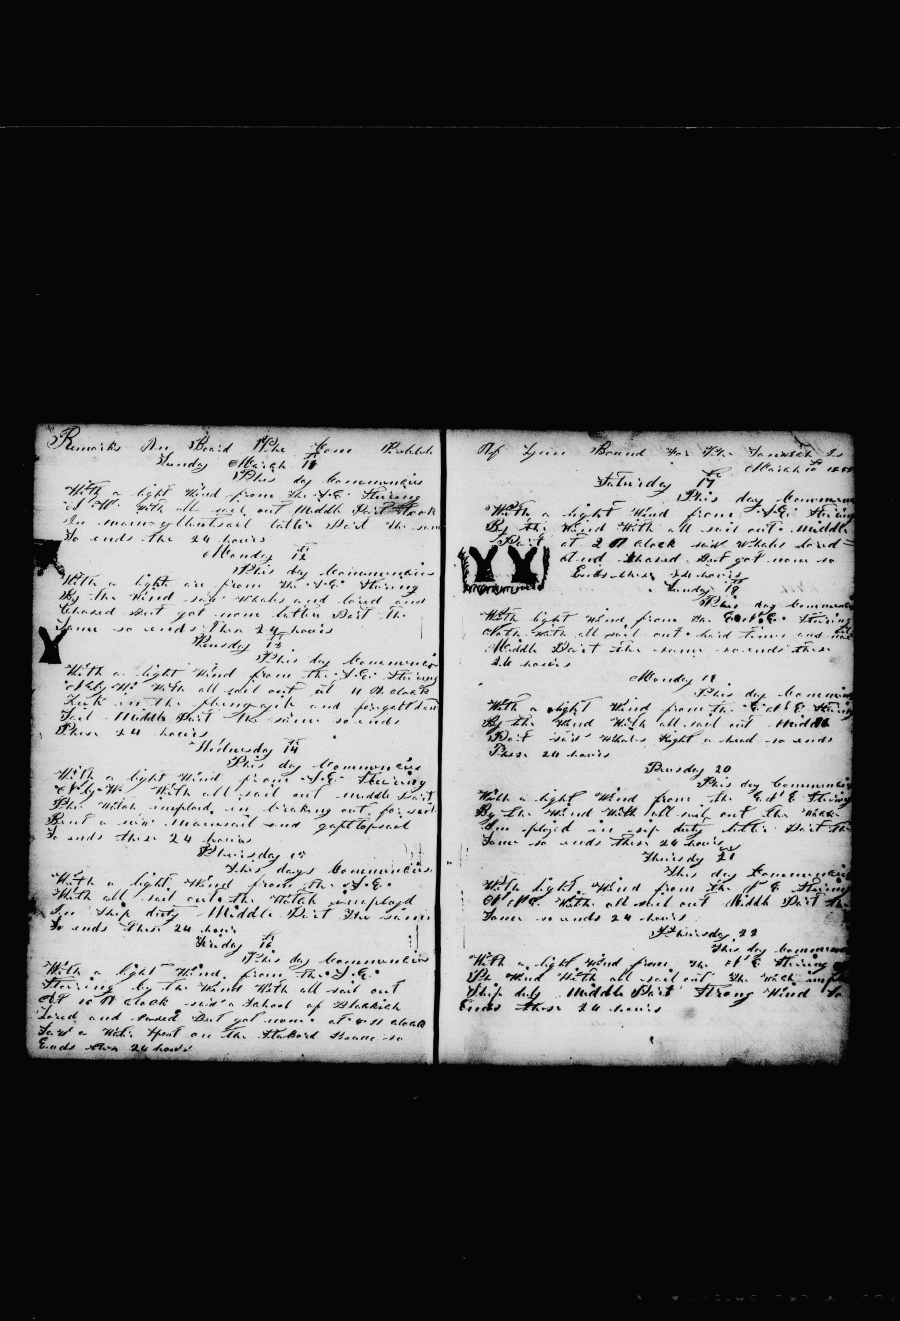 Remarks On Board The Com Preble
Sunday March 11
This day Commencies
With a light Wind from the S.E. Stering
N W With all sail out Middle Part took
In main-gallantsail latter Part the sam
So ends the 24 hours
Monday 12
This day Commencies
With a light are from the S.E. Stering
By the Wind saw Whales and lored and
Chased But got none latter Part the
Same so ends These 24 hours
Thusday 13
This day Commencies
With a light Wind from the S.E. Stering
N by W With all sail out at 11 O clock
Took in the flying gib and foregallant
Sail Middle Part the same so ends
These 24 hours
Wednesday 14
This day Commencies
With a light Wind from S.E. Steering
N by W With all sail out middle Part
The Watch imployd in braking out for sail
Bent a new mainsail and gafttopsail
So ends these 24 hours
Thirsday 15
This days Commencies
With a light Wind from the S.E.
With all sail out the Watch employd
In Ship duty Middle Part the same
So ends These 24 hours
Friday 16
This day Commencies
With a light Wind from the S.E.
Stering by the Wind With all sail out
At 10 O clock saw a School of Blackfish
Lored and But got none at 11 O clock
Saw a Whale Spout on the Stabord so
Ends these 24 hours
Of Lynn Bound For The
March 10 18
Saturday 17
This day Commence
With a light Wind from S.E. Stering
By the Wind With all sail out Middle
Part at 2 O Clock saw Whales lored
And Chased But got none so
Ends these 24 hours
Sunday 18
This day Commence
With light Wind from the E.N.E. Stering
North With all sail out hard times and
Middle Part the same so ends these
24 hours
Monday 19
This day Commence
With a light Wind from the E N E Stering
By the Wind With all sail out Middle
Part saw Whales Right a head so ends
These 24 hours
Tusday 20
This day Commencies
With a light Wind from the Stering
By the Wind With all sail out the Watch
Imployed in ship duty latter Part the
Same so ends these 24 hours
Thursday 21
This day Commencies
With light Wind from the N E Stering
With all sail out Middle Part the
Same so ends 24 hours
Thirsday 22
This day Commence
With a light Wind from the N E Stering
The Wind With all sail out the Watch
Ship duty Middle Part Strong Wind So
Ends these 24 hours